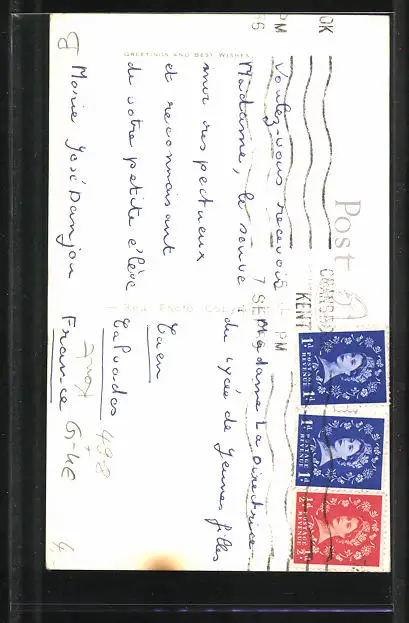 GREETINGS AND BEST WISHES
Post
Voulez-vous recevoir
Madame, le souve
nir respectueux
et reconnaissant
de votre petite élève
Marie José Danjou
Real Photo
KENT
7 SEP
PM
Madame La Directrice
du Lycée de Jeunes filles
Caen
Calvados
France
1d POSTAGE REVENUE 1d
1d POSTAGE REVENUE 1d
½d POSTAGE REVENUE ½d